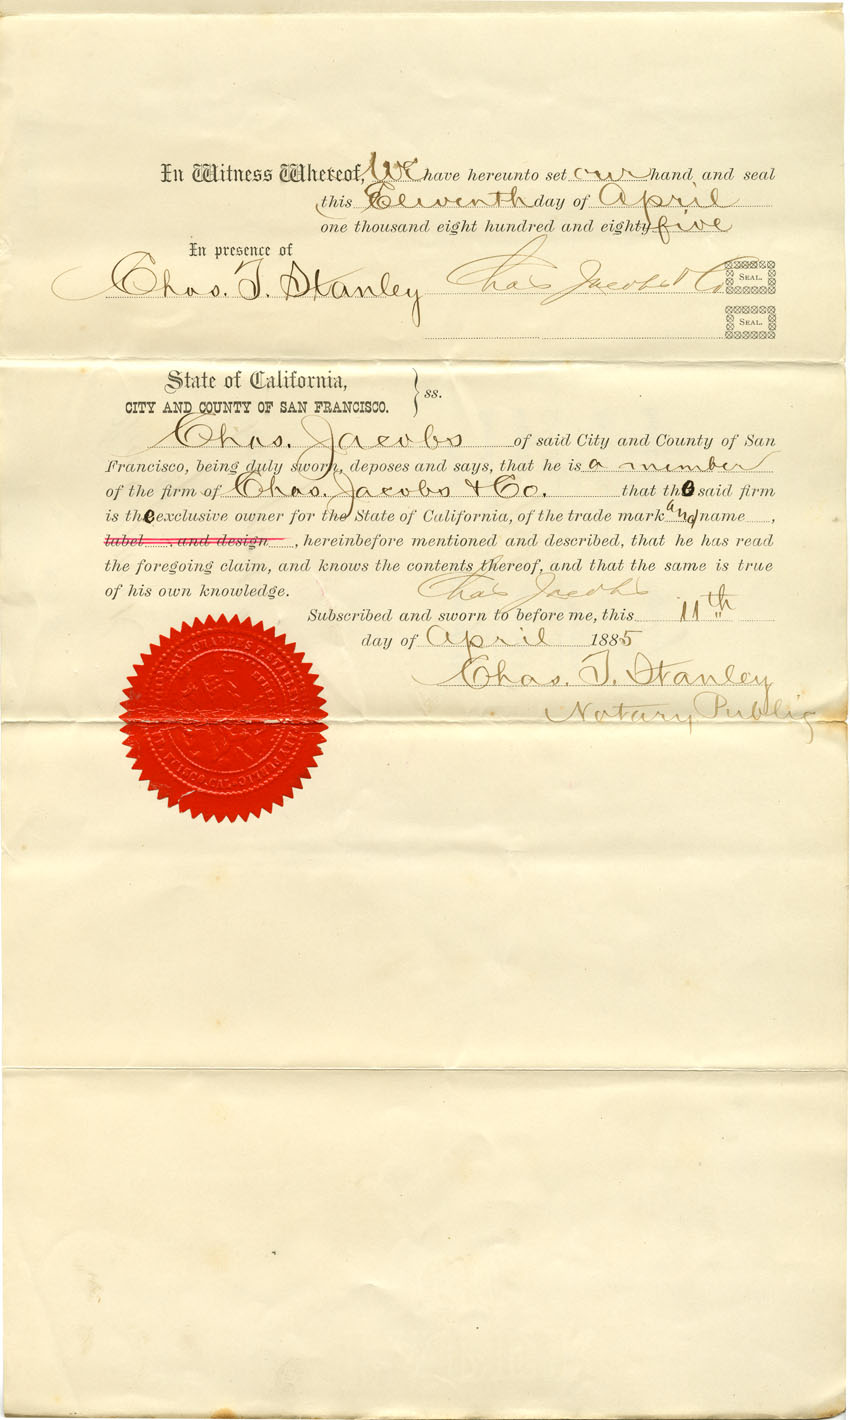 In Witness Whereof, We have hereunto set our hand and seal
this Eleventh day of April
one thousand eight hundred and eighty five
In presence of
Chas. T. Stanley Chas Jacobs & Co SEAL.
SEAL.
State of California,
CITY AND COUNTY OF SAN FRANCISCO. } ss.
Chas. Jacobs of said City and County of San
Francisco, being duly sworn, deposes and says, that he is a member
of the firm of Chas. Jacobs & Co. that the said firm
is the exclusive owner for the State of California, of the trade mark and name,
label, and design, hereinbefore mentioned and described, that he has read
the foregoing claim, and knows the contents thereof, and that the same is true
of his own knowledge. Chas Jacobs
Subscribed and sworn to before me, this 11th
day of April 1885
Chas. T. Stanley
Notary Public